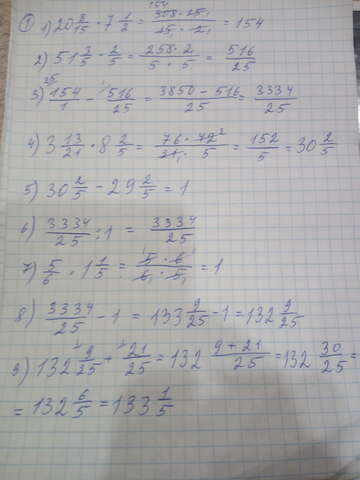 ① 1) 20 8/15 · 7 1/2 = 308 · 15/15 · 2 = 154
2) 51 3/5 · 2/5 = 258 · 2/5 · 5 = 516/25
3) 154/1 - 516/25 = 3850 - 516/25 = 3334/25
4) 3 13/21 · 8 2/5 = 76 · 42 2/21 · 5 = 152/5 = 30 2/5
5) 30 2/5 - 29 2/5 = 1
6) 3334/25 : 1 = 3334/25
7) 5/6 · 1 1/5 = 5 · 6/6 · 5 = 1
8) 3334/25 - 1 = 133 9/25 - 1 = 132 9/25
9) 132 9/25 + 21/25 = 132 9 + 21/25 = 132 30/25 =
= 132 6/5 = 133 1/5